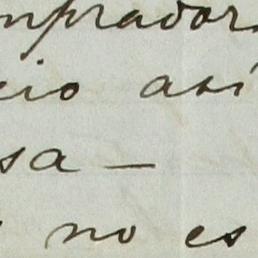 mprador
cio así
sa —
no es